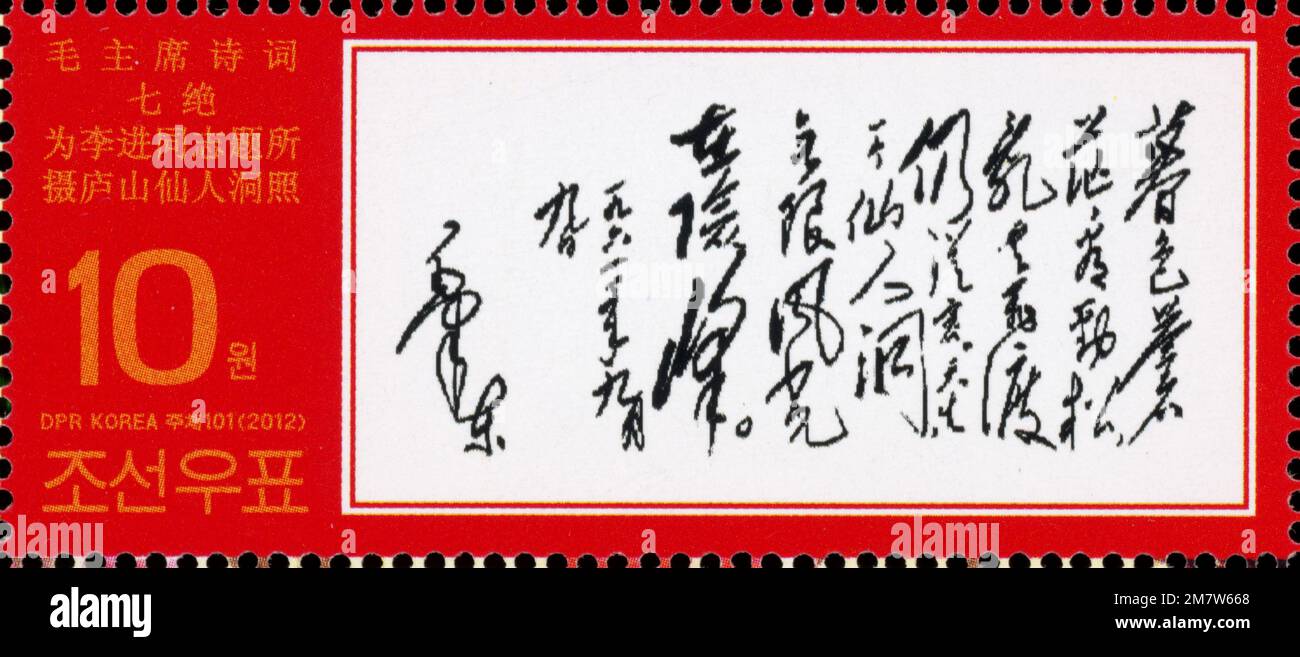 毛主席诗词
七绝
为李进同志题所
摄庐山仙人洞照
10원
DPR KOREA 주체101(2012)
조선우표
暮色蒼
茫看勁松
亂雲飛渡
仍從容天生
一个仙人洞
无限風光
在險峰。
一九六一年九月
九日
毛澤东
alamy
Image ID: 2M7W668
www.alamy.com